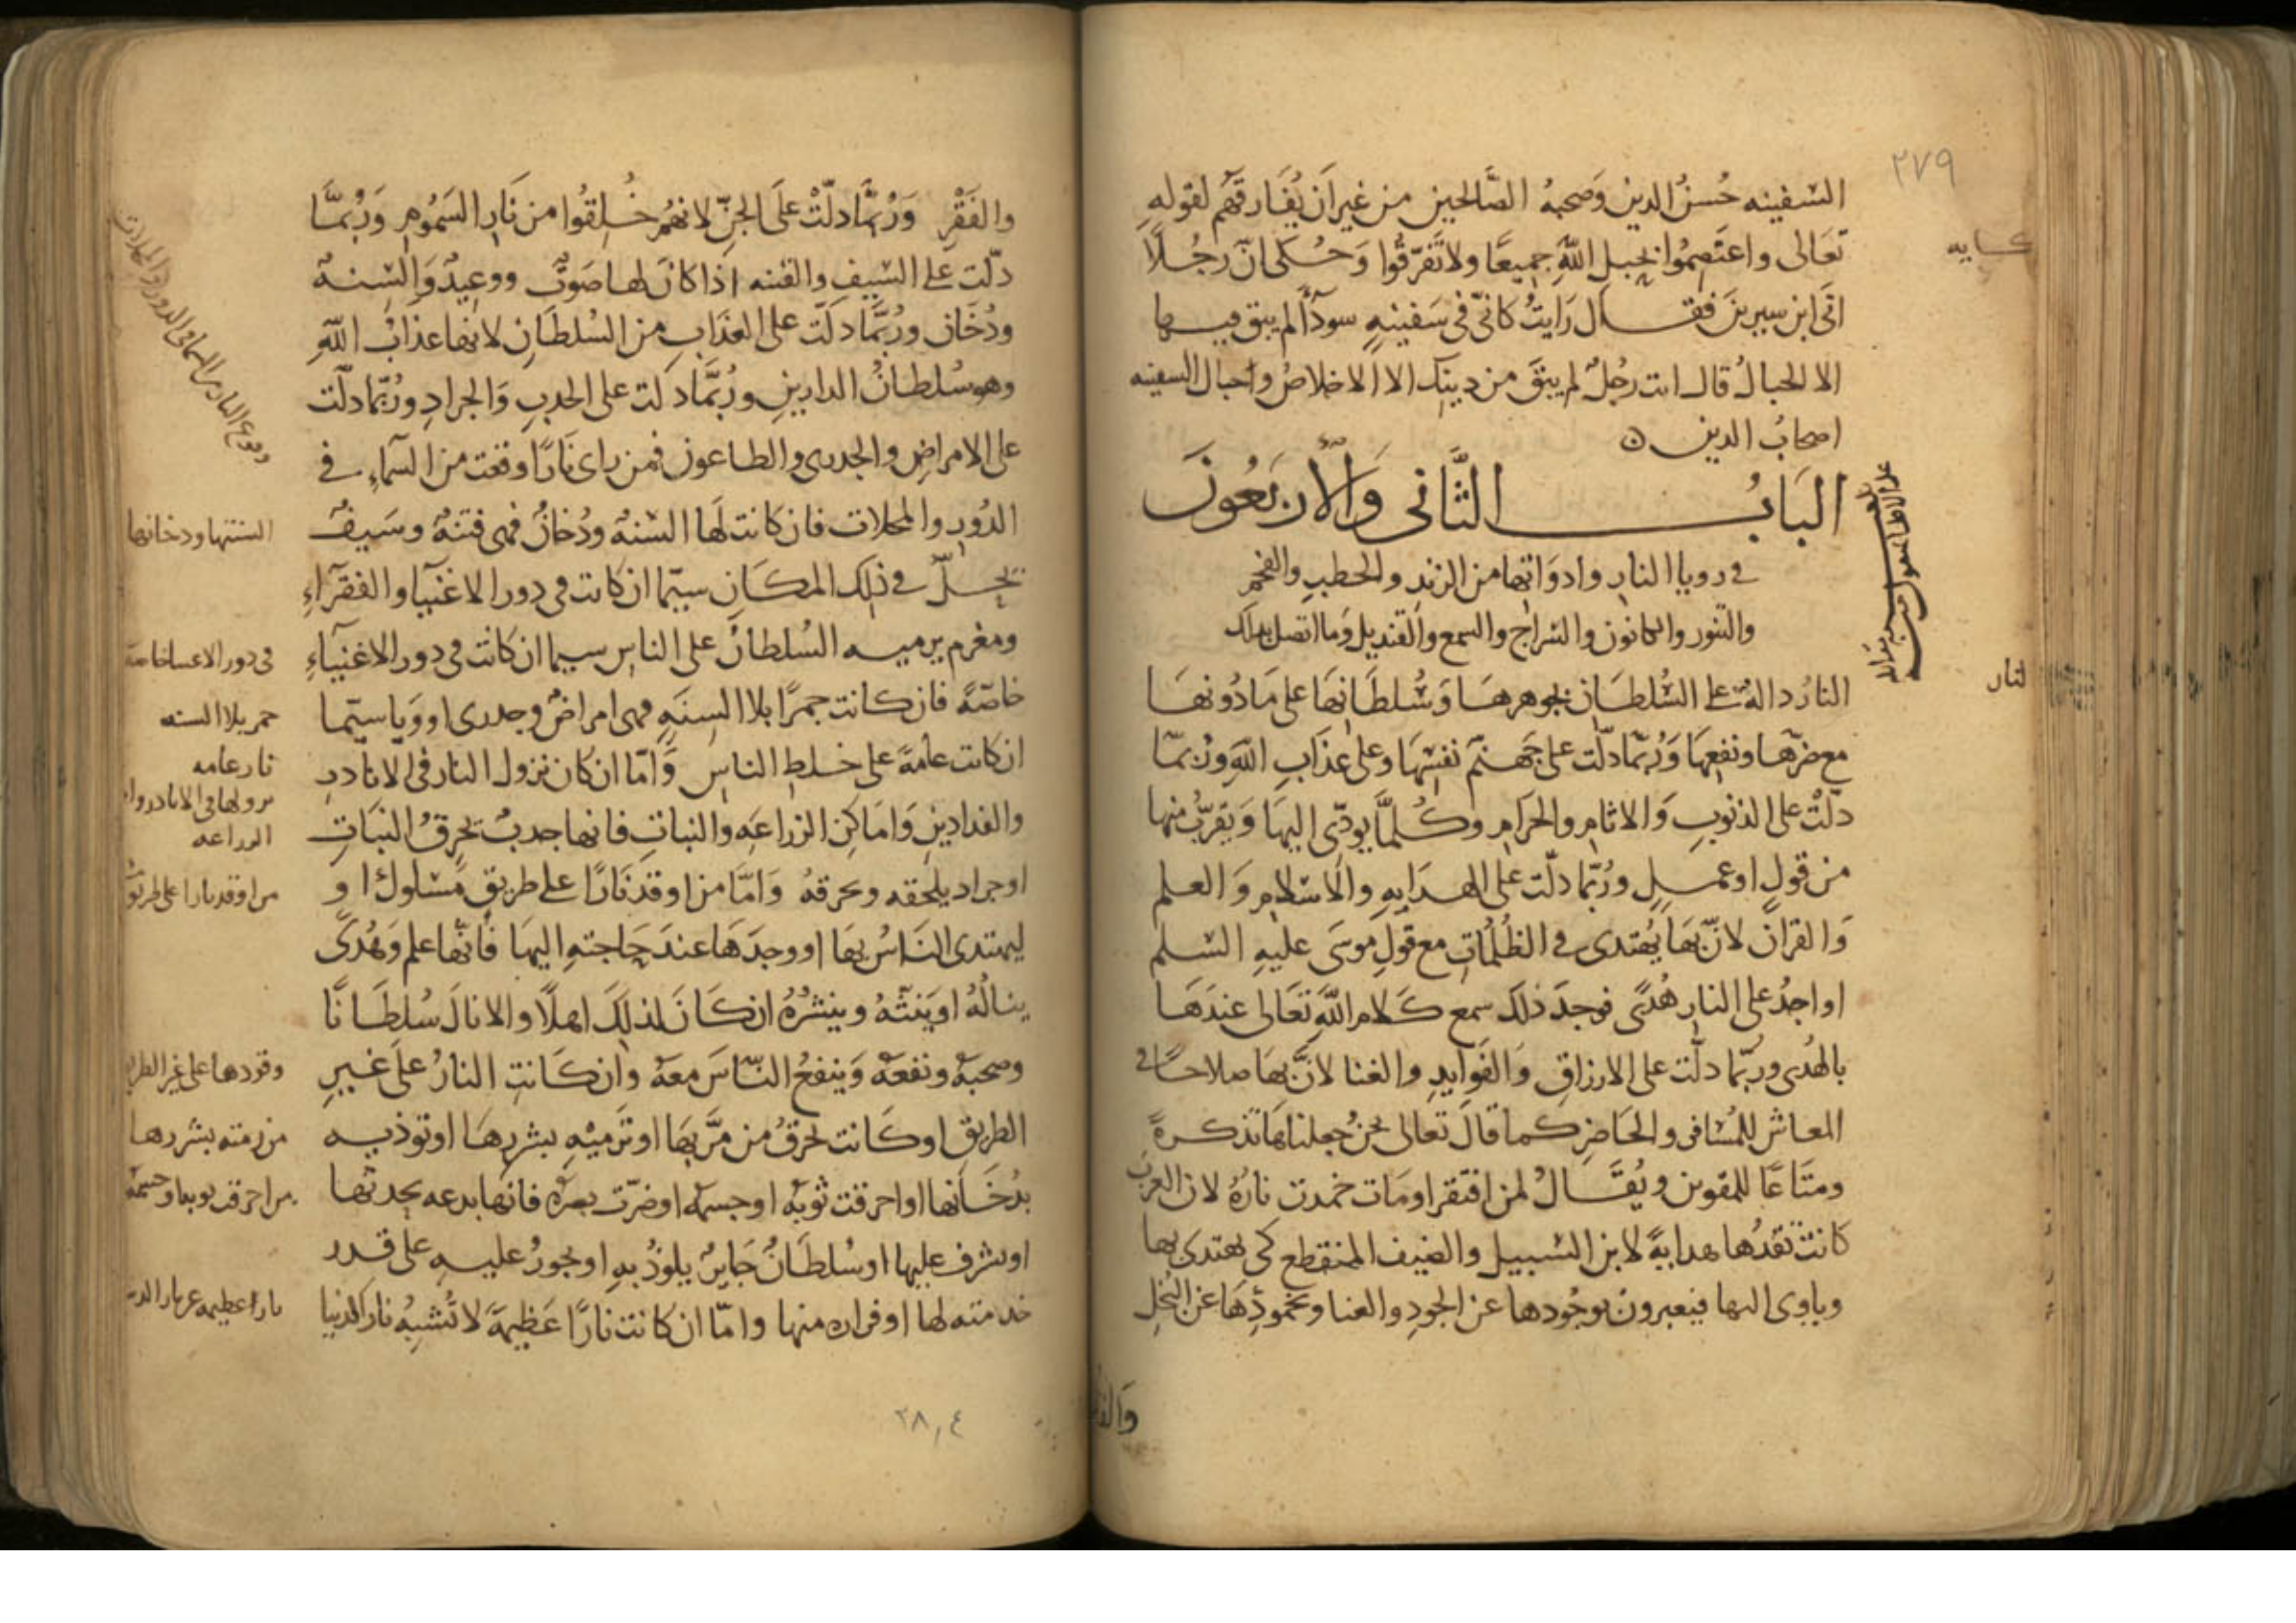 ٢٧٩
السفينه حُسنُ الدين وَصحبهُ الصَّالحين من غير اَن يُفَارقهَم لقولهِ
تعَالى واعتَصِمُوا بحبلِ اللهِ جميعًا ولا تَفَرّقُوا وَحُكى انّ رجُلًا
اتى ابن سيرينَ فقال رَايتُ كانّى فى سَفينهٍ سودآ لم يبق فيها
الا الحبالُ قال انت رجُلٌ لم يبقَ من دينك الا الاخلاصُ واحبال السفينه
اصحَابُ الدين
البَابُ الثَّانى وَالأربَعُونَ
فى رويا النار وادوَاتها من الزند والحطبِ والفحم
والتنور والكانون والسّراج والشمع والقنديل وَما اتصل بذلك
النارُ دالةٌ على السُّلطَان بجوهرهَا وَسُلطَانِهَا على مَا دُونهَا
مع ضرّها ونفعِهَا وَرُبّما دلّت على جَهنّم نفسْهَا وعلى عذَابِ اللهِ ورُبّما
دلّتْ على الذنوبِ وَالاثامِ والحرَامِ وكُلمَّا يودّى اليهَا وَيقرّبُ منها
من قولٍ اوعملٍ ورُبّما دلّت على الهدَايهِ والاسْلامِ وَالعلم
وَالقرانِ لانّ بهَا يُهتدى فى الظلُمَاتِ مع قَولِ موسَى عليهِ السّلم
او اجدُ على النارِ هُدًى فوجدَ ذلكَ سمع كَلام اللهِ تعَالى عندَهَا
بالهُدى وربّما دلّت على الارزاقِ وَالفَوايدِ والغنا لانَّ بهَا صلاحًا فى
المعاش للمُسَافر والحَاضِر كما قالَ تعالى نحنُ جعلناهَا تذكرةً
ومتَاعًا للمقوين ويُقَالُ لمن افتقر اومَات خمدت نارُهُ لان العرَبَ
كانتْ تقدُهَا هدايةً لابن السّبيل والضيف المنقطع كى يهتدى بها
وياوى اليها فيعبرون بوجُودها عن الجودِ والغنا وبخمودِهَا عن البُخلِ
كايه
النار
والفَقْرِ وَرُبّمَا دلّتْ علَى الجنّ لانهُم خُلِقُوا من نَارِ السَمُومِ وَرُبمَّا
دلّت على السّيفِ والفتنه اذا كانَ لها صَوتٌ ووعِيدٌ وَالسِنةٌ
ودُخَان ورُبَّما دَلّت على العذَابِ من السُلطَانِ لانها عذَابُ اللهِ
وهو سُلطانُ الدارينِ ورُبَّما دَلت على الجدبِ وَالجرادِ ورُبّما دلّت
على الامراضِ والجدرى والطاعون فمن راى نَارًا وقعت من السّمآءِ فى
الدُورِ والمحلات فان كانت لَها السْنهٌ ودُخانٌ فهى فتنهٌ وسَيفٌ
يحلّ فى ذلِك المكَان سيّما ان كانت فى دور الاغنيآ والفقرَآءِ
ومغرم يرميه السُلطانُ على الناسِ سيما ان كانَت فى دور الاغنيآءِ
خاصّةً فان كانت جمرًا بلا السِنَهٍ فهى امراضٌ وجدرى او وَبا سيّما
ان كانت عَامةً على خلط الناس وَامّا ان كان نزول النار فى الانادرِ
والفدادينِ وَامَاكنِ الزراعَهِ والنباتِ فانها جدبٌ تحرقُ النبَاتِ
اوجراد يلحقه ويحرقهُ وَامَّا من اوقد نَارًا على طريقٍ مَسْلوك او
ليهتدى النَاسُ بهَا او وجدَهَا عندَ حَاجتهِ اليهَا فَانّها علم وَهُدًى
ينالُهُ اويَبثّهُ وينشُرُهُ ان كَانَ لذلِكَ اهلًا والا نالَ سُلطَانًا
وصحبهً ونفعهً وَينفعُ النّاسَ معهُ وان كَانتِ النارُ علَى غيرِ
الطريق اوكَانت تحرقُ من مرَّ بهَا اوتَرميْهِ بشررِهَا اوتوذيه
بدُخَانها او احرقت ثوبَهُ اوجسمَهُ اوضرّت بصرَهُ فانها بدعه يحدثها
اويشرف عليها اوسُلطَانٌ جَايرٌ يلوذُ بهِ اويجورُ عليهِ على قدر
خدمته لها اوفراره منها وامّا ان كانت نارًا عَظيمةً لا تُشبِهُ نارَ الدنيا
وقوع النار من السما فى الدور والمحلات
السنتها ودخانها
فى دور الاغنيا خاصة
جمر بلا السنه
نار عامه
نزولها فى الانادر
الزراعه
من اوقد نارا على طريق
وقودها على غير الطريق
من رمته بشررها
من احرقت ثوبه اوجسمه
نارا عظيمه غير نار الدنيا
٢٨٠